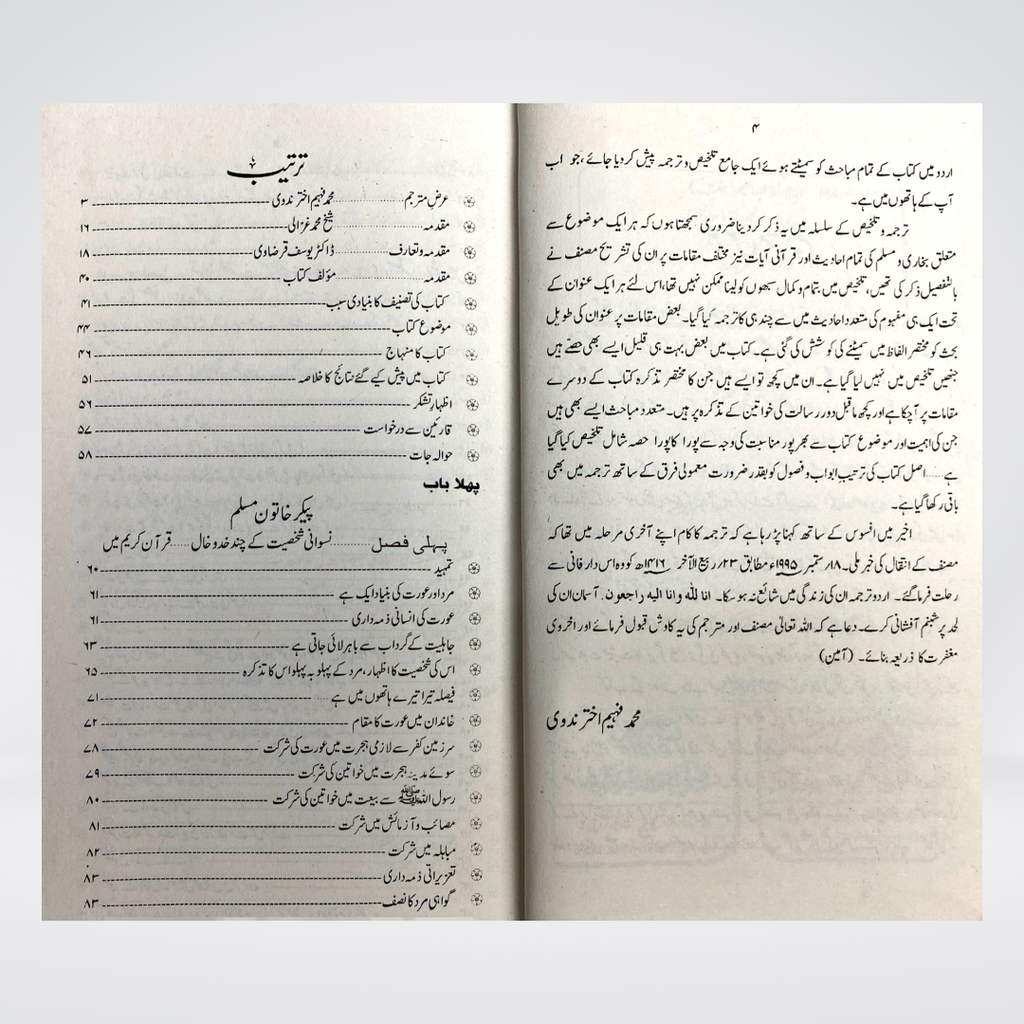 ۴
اردو میں کتاب کے تمام مباحث کو سمیٹتے ہوئے ایک جامع تلخیص و ترجمہ پیش کر دیا جائے، جو اب
آپ کے ہاتھوں میں ہے۔
ترجمہ و تلخیص کے سلسلہ میں یہ ذکر کر دینا ضروری سمجھتا ہوں کہ ہر ایک موضوع سے
متعلق بخاری و مسلم کی تمام احادیث اور قرآنی آیات نیز مختلف مقامات پر ان کی تشریح مصنف نے
بالتفصیل ذکر کی تھیں، تلخیص میں بتمام و کمال سبھوں کو لینا ممکن نہیں تھا، اس لئے ہر ایک عنوان کے
تحت ایک ہی مفہوم کی متعدد احادیث میں سے چند ہی کا ترجمہ کیا گیا۔ بعض مقامات پر عنوان کی طویل
بحث کو مختصر الفاظ میں سمیٹنے کی کوشش کی گئی ہے۔ کتاب میں بعض بہت ہی قلیل ایسے بھی حصّے ہیں
جنھیں تلخیص میں نہیں لیا گیا ہے۔ ان میں کچھ تو ایسے ہیں جن کا مختصر تذکرہ کتاب کے دوسرے
مقامات پر آچکا ہے اور کچھ ماقبل دور رسالت کی خواتین کے تذکرہ پر ہیں۔ متعدد مباحث ایسے بھی ہیں
جن کی اہمیت اور موضوع کتاب سے بھر پور مناسبت کی وجہ سے پورا کا پورا حصہ شامل تلخیص کیا گیا
ہے..... اصل کتاب کی ترتیب ابواب و فصول کو بقدر ضرورت معمولی فرق کے ساتھ ترجمہ میں بھی
باقی رکھا گیا ہے۔
اخیر میں افسوس کے ساتھ کہنا پڑ رہا ہے کہ ترجمہ کا کام اپنے آخری مرحلہ میں تھا کہ
مصنف کے انتقال کی خبر ملی۔ ۱۸؍ ستمبر ۱۹۹۵ء مطابق ۲۳؍ ربیع الآخر ۱۴۱۶ھ کو وہ اس دار فانی سے
رحلت فرما گئے۔ اردو ترجمہ ان کی زندگی میں شائع نہ ہو سکا۔ انا للہ وانا الیه راجعون. آسمان ان کی
لحد پر شبنم آفشانی کرے۔ دعا ہے کہ اللہ تعالیٰ مصنف اور مترجم کی یہ کاوش قبول فرمائے اور اخروی
مغفرت کا ذریعہ بنائے۔ (آمین)
محمد فہیم اختر ندوی
ترتیب
عرض مترجم ............ محمد فہیم اختر ندوی ------------ ۳
مقدمہ ............ شیخ محمد غزالی ------------ ۱۶
مقدمہ و تعارف ............ ڈاکٹر یوسف قرضاوی ------------ ۱۸
مقدمہ ............ مؤلف کتاب ------------ ۴۰
کتاب کی تصنیف کا بنیادی سبب ------------ ۴۱
موضوع کتاب ------------ ۴۴
کتاب کا منہاج ------------ ۴۶
کتاب میں پیش کیے گئے نتائج کا خلاصہ ------------ ۵۱
اظہار تشکر ------------ ۵۶
قارئین سے درخواست ------------ ۵۷
حوالہ جات ------------ ۵۸
پہلا باب
پیکر خاتون مسلم
پہلی فصل ............ نسوانی شخصیت کے چند خدوخال ..... قرآن کریم میں
تمہید ------------ ۶۰
مرد اور عورت کی بنیاد ایک ہے ------------ ۶۱
عورت کی انسانی ذمہ داری ------------ ۶۱
جاہلیت کے گرداب سے باہر لائی جاتی ہے ------------ ۶۳
اس کی شخصیت کا اظہار، مرد کے پہلو بہ پہلو اس کا تذکرہ ------------ ۶۵
فیصلہ تیرا تیرے ہاتھوں میں ہے ............ ۷۱
خاندان میں عورت کا مقام ------------ ۷۲
سرزمین کفر سے لازمی ہجرت میں عورت کی شرکت ------------ ۷۸
سوئے مدینہ ہجرت میں خواتین کی شرکت ------------ ۷۹
رسول اللہ ﷺ سے بیعت میں خواتین کی شرکت ------------ ۸۰
مصائب و آزمائش میں شرکت ------------ ۸۱
مباہلہ میں شرکت ------------ ۸۲
تعزیراتی ذمہ داری ------------ ۸۳
گواہی مرد کا نصف ------------ ۸۳